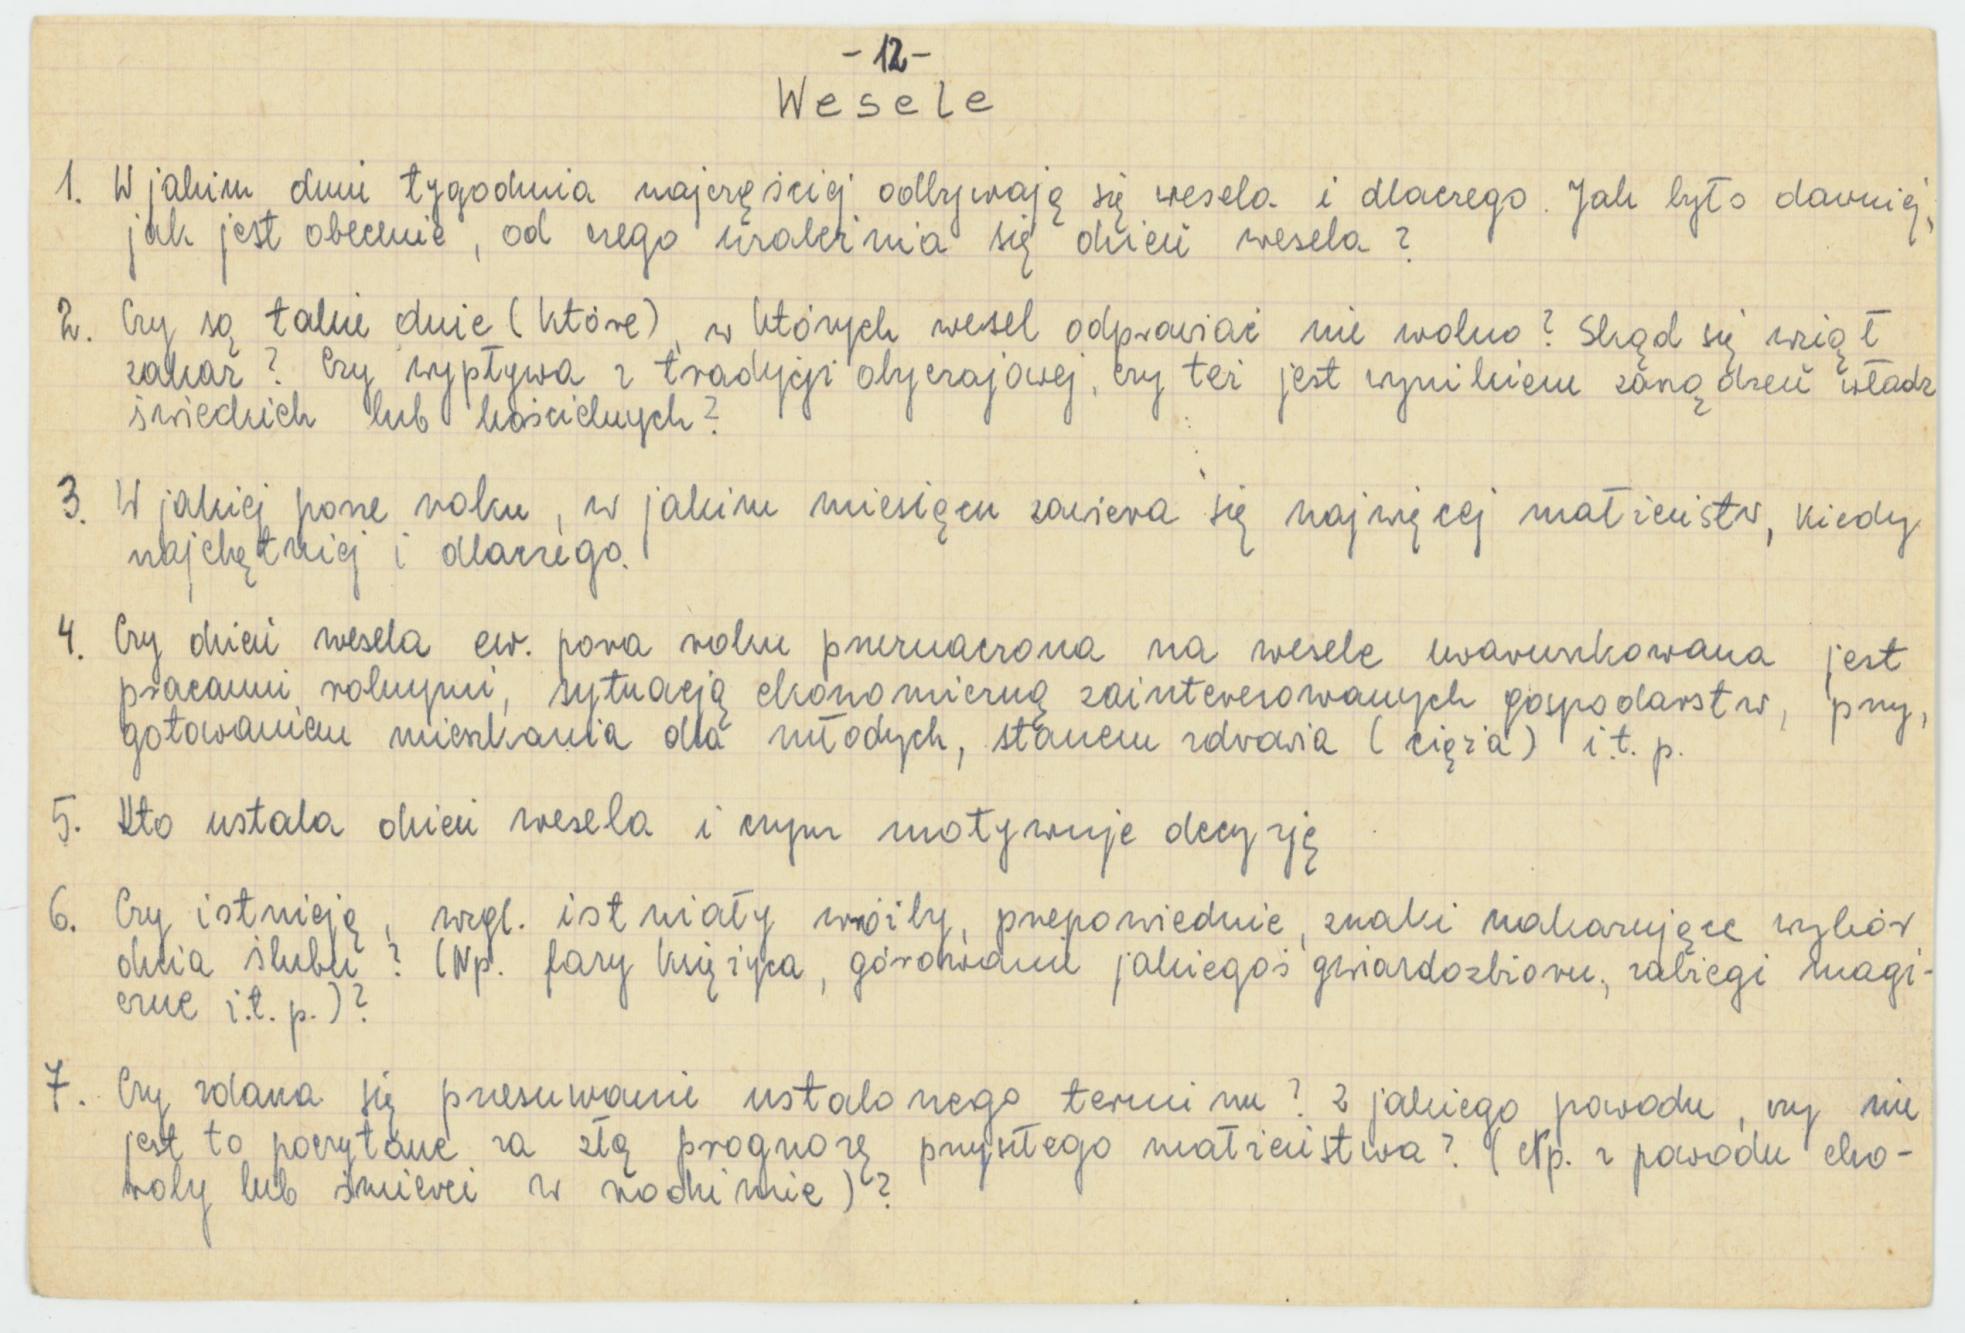 - 12 -
Wesele
1. W jakim dniu tygodnia najczęściej odbywają się wesela i dlaczego. Jak było dawniej,
jak jest obecnie, od czego uzależnia się dzień wesela?
2. Czy są takie dnie (które), w których wesel odprawiać nie wolno? Skąd się wziął
zakaz? Czy wypływa z tradycji obyczajowej, czy też jest wynikiem zarządzeń władz
świeckich lub kościelnych?
3. W jakiej porze roku, w jakim miesiącu zawiera się najwięcej małżeństw, kiedy
najchętniej i dlaczego.
4. Czy dzień wesela ew. pora roku przeznaczona na wesele uwarunkowana jest
pracami rolnymi, sytuacją ekonomiczną zainteresowanych gospodarstw, przy,
gotowaniem mieszkania dla młodych, stanem zdrowia (ciąża) i.t.p.
5. Kto ustala dzień wesela i czym motywuje decyzję
6. Czy istnieją, wzgl. istniały wróżby, przepowiednie, znaki nakazujące wybór
dnia ślubu? (Np. fazy księżyca, górowanie jakiegoś gwiazdozbioru, zabiegi magi-
czne i.t.p.)?
7. Czy zdarza się przesuwanie ustalonego terminu? Z jakiego powodu, czy nie
jest to poczytane za złą prognozę przyszłego małżeństwa? (Np. z powodu cho-
roby lub śmierci w rodzinie)?